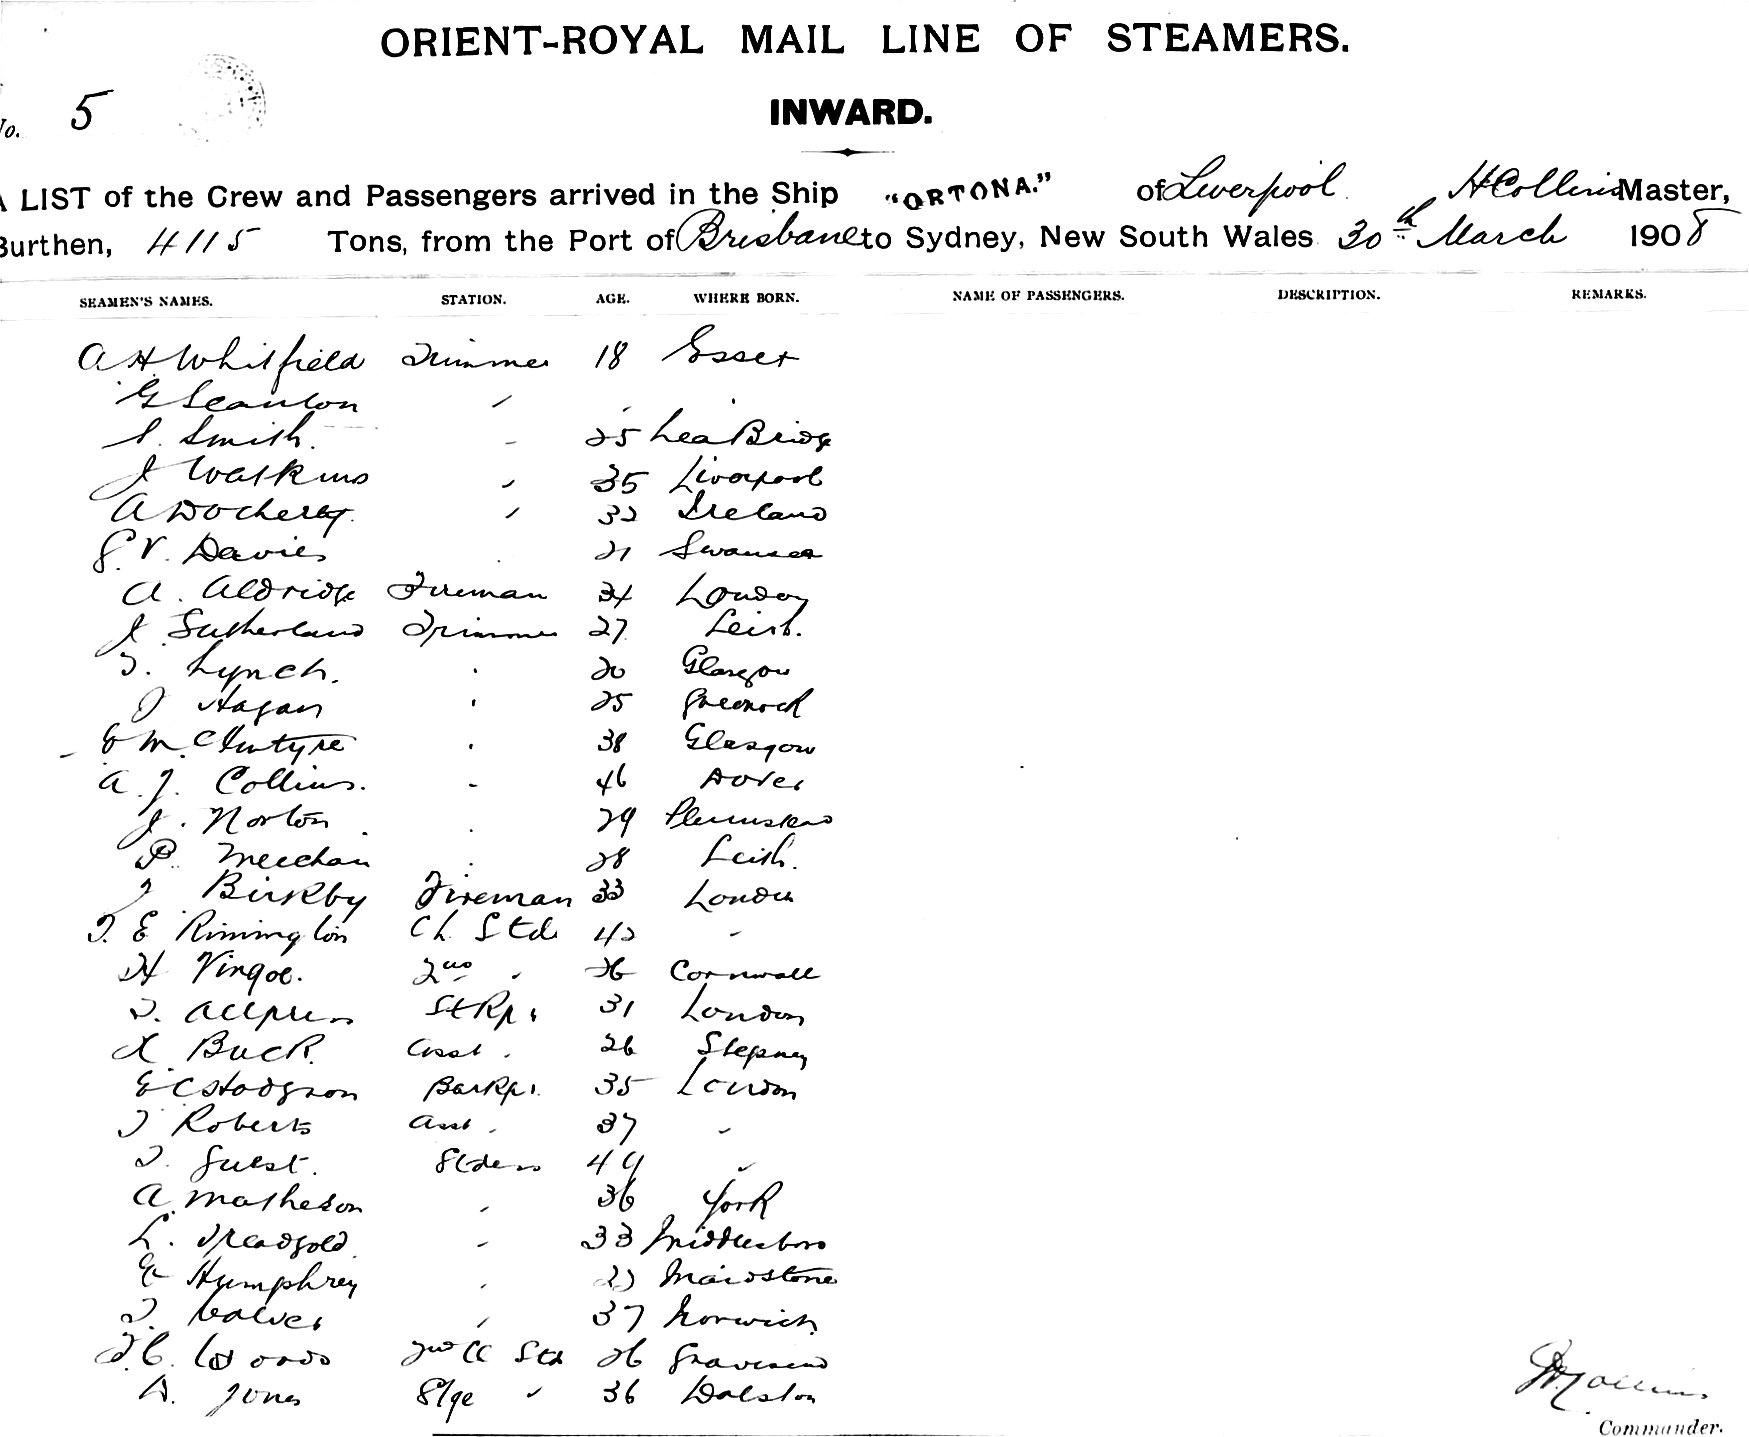 ORIENT-ROYAL MAIL LINE OF STEAMERS.
No. 5
INWARD.
A LIST of the Crew and Passengers arrived in the Ship "ORTONA." of Liverpool H Collins Master,
Burthen, 4115 Tons, from the Port of Brisbane to Sydney, New South Wales 30th March 1908
SEAMEN'S NAMES. STATION. AGE. WHERE BORN. NAME OF PASSENGERS. DESCRIPTION. REMARKS.
A H Whitfield Trimmer 18 Essex
G Scanlon "
S. Smith. " 25 Lea Bridge
J Watkins " 35 Liverpool
A Docherty. " 32 Ireland
V. Davies 21 Swansea
A. Aldridge Fireman 34 London
J Sutherland Trimmer 27 Leith.
T. Lynch. " 20 Glasgow
J Hagan " 25 Greenock
E McIntyre " 38 Glasgow
A. J. Collins. " 46 Dover
J. Norton " 29
P. Meechan " 28 Leith.
J Birkby Fireman 33 London
T. E Rimington Ch Std 42 "
H Vingoe. 2nd " 26 Cornwall
T. Allpress StKpr 31 London
Buck. Asst. 26 Stepney
E C Hodgson BarKpr. 35 London
J Roberts Asst " 37 "
T. Guest. Stdess 49 "
A. Matheson " 36 York
L. Treadgold " 33 Middlesboro
Humphrey " Maidstone
T. " 37 Norwich
T. C. Woods 2nd Cl Std 26 Gravesend
D. Jones Stge " 36 Dalston
H Collins
Commander.